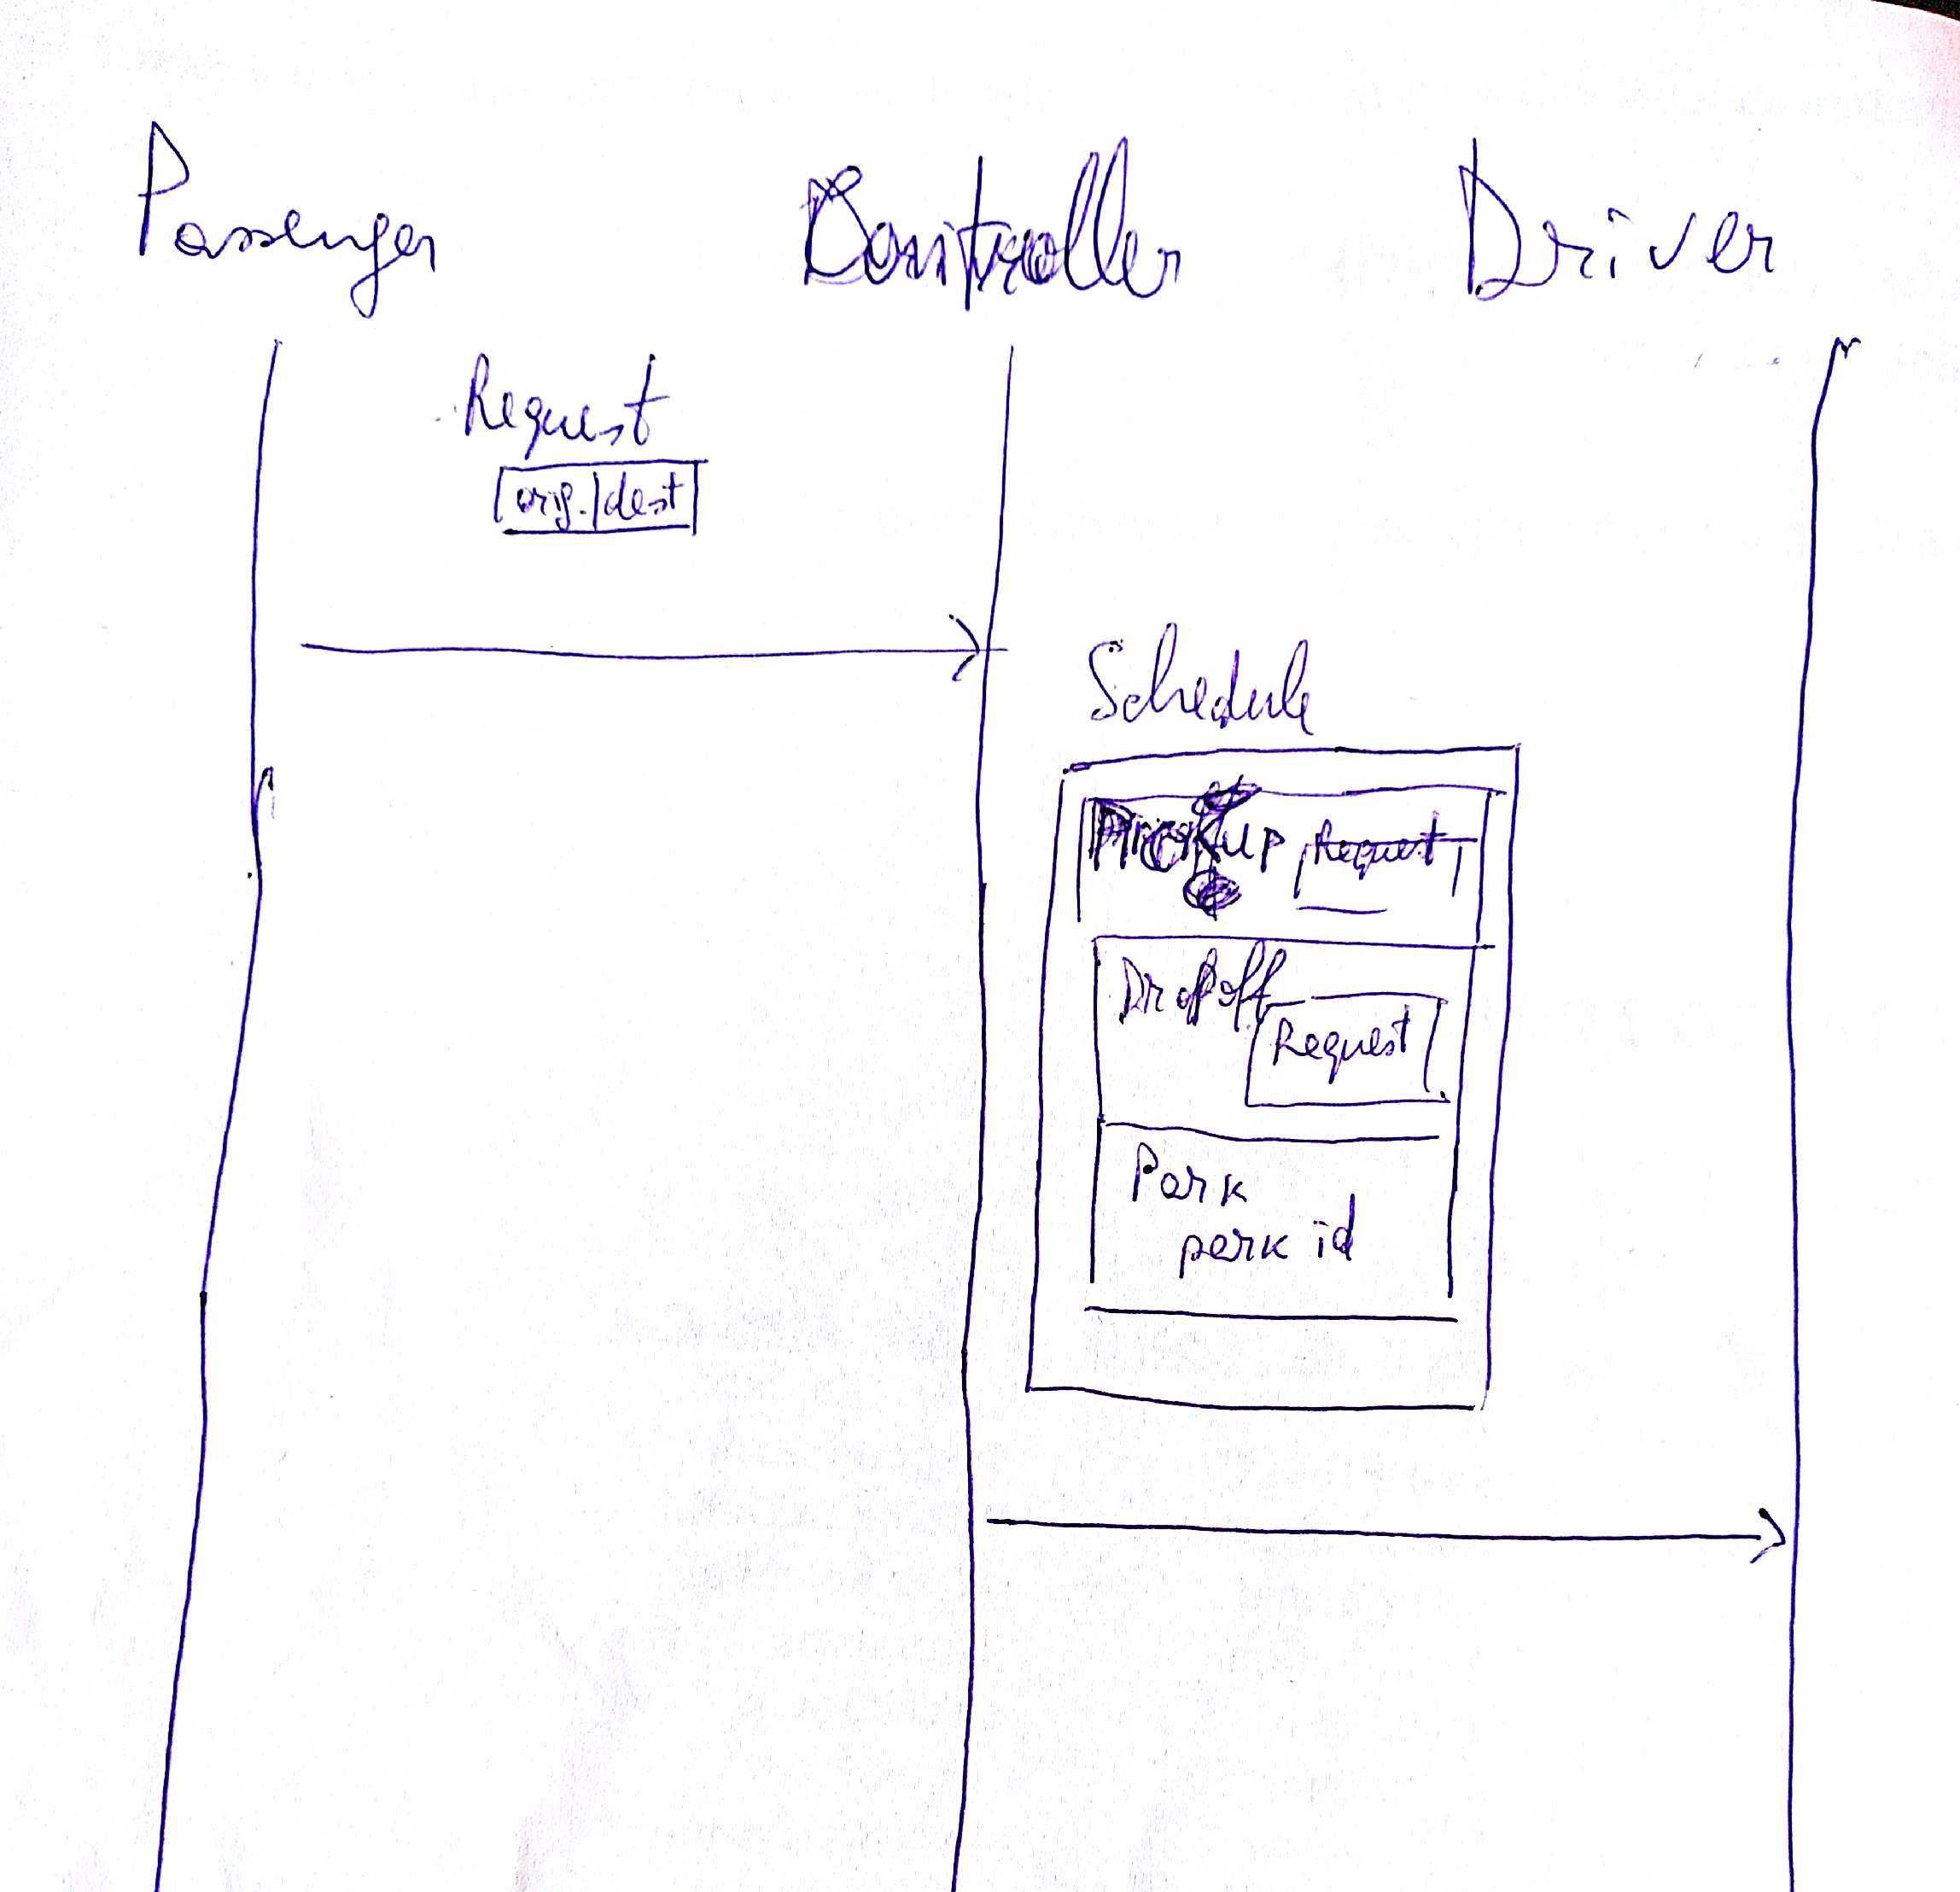 Passenger Controller Driver
Request
orig. dest
Schedule
Pickup Request
Dropoff
Request
Park
park id